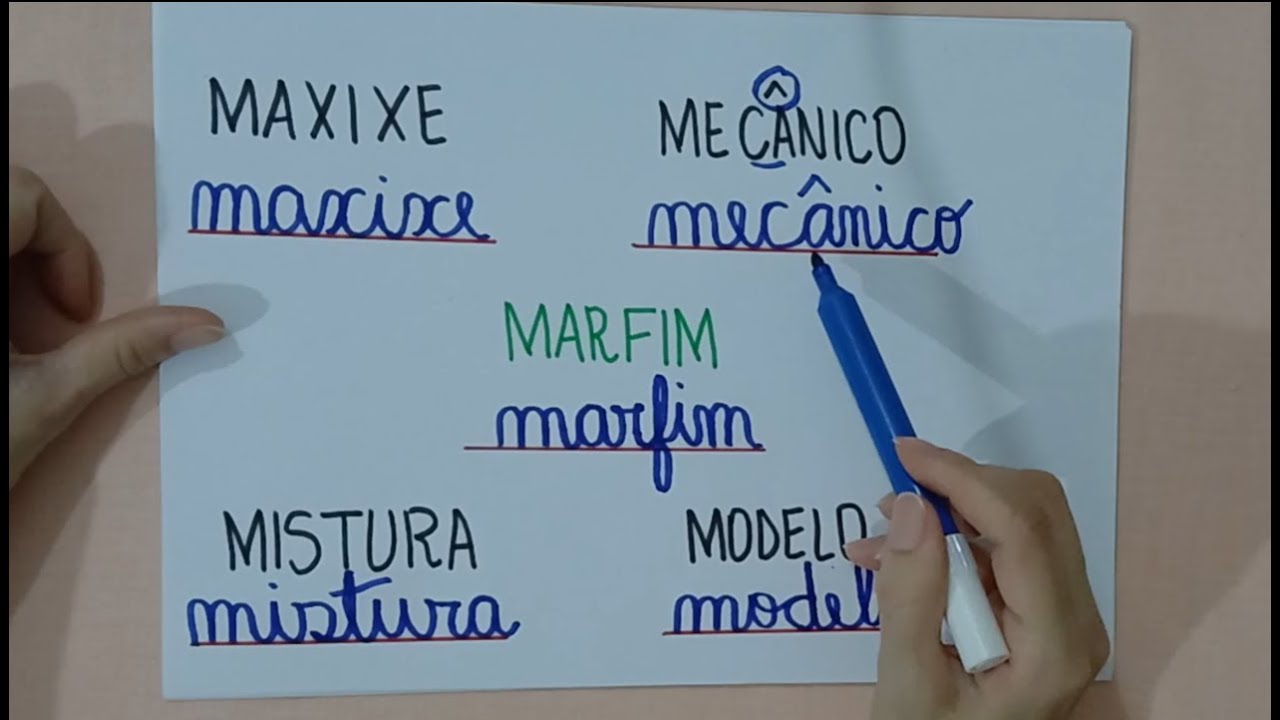 MAXIXE
maxixe
MECÂNICO
mecânico
MARFIM
marfim
MISTURA
mistura
MODELO
model